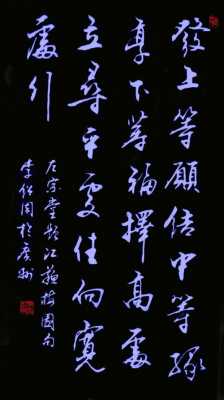 發上等願結中等緣
享下等福擇高處
立尋平處住向寬
處行
左宗棠題江蘇梅園句
於廣州